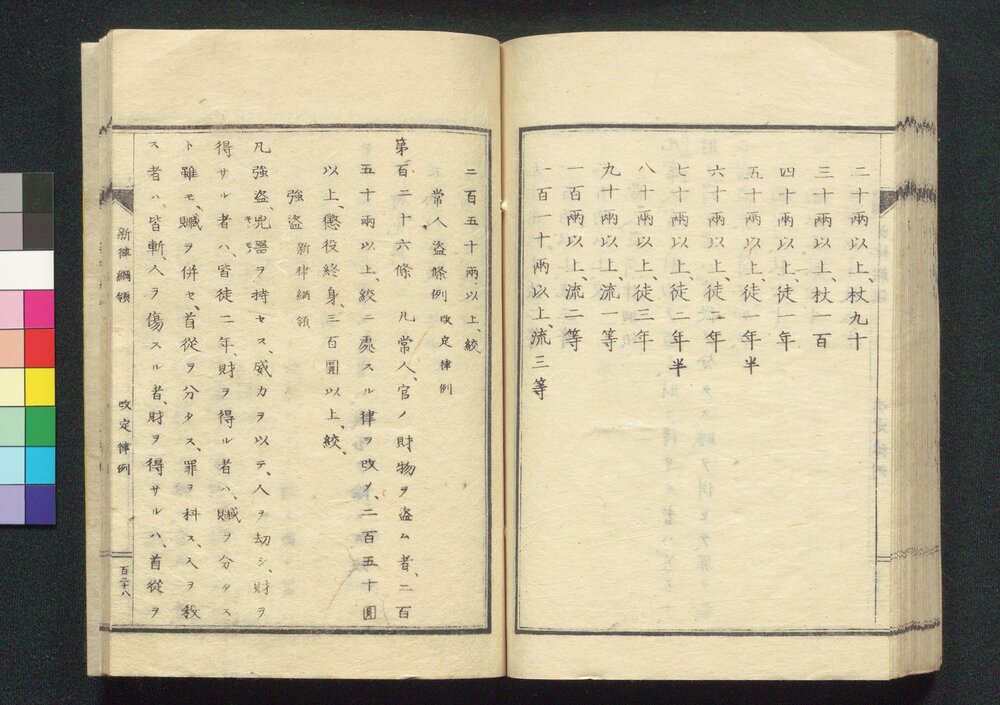 二十兩以上、杖九十
三十兩以上、杖一百
四十兩以上、徒一年
五十兩以上、徒一年半
六十兩以上、徒二年
七十兩以上、徒二年半
八十兩以上、徒三年
九十兩以上、流一等
一百兩以上、流二等
一百一十兩以上、流三等
二百五十兩以上、絞、
常人盜條例 改定律例
第百二十六條 凡常人、官ノ財物ヲ盜ム者、二百
五十兩以上絞ニ處スル律ヲ改メ、二百五十圓
以上、懲役終身、三百圓以上、絞、
強盜 新律綱領
凡強盜、兇器ヲ持セス、威力ヲ以テ、人ヲ劫シ、財ヲ
得サル者ハ、皆徒二年、財ヲ得ル者ハ、贓ヲ分タス
ト雖モ、贓ヲ併セ、首從ヲ分タス、罪ヲ科ス、人ヲ殺
ス者ハ、皆斬、人ヲ傷スル者、財ヲ得サルハ、首從ヲ
新律綱領 改定律例 百二十八